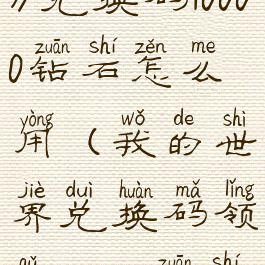 兑换码1000
zuān shí zěn me
0钻石怎么
yòng wǒ de shì
用(我的世
jiè duì huàn mǎ lǐng
界兑换码领
zuān shí